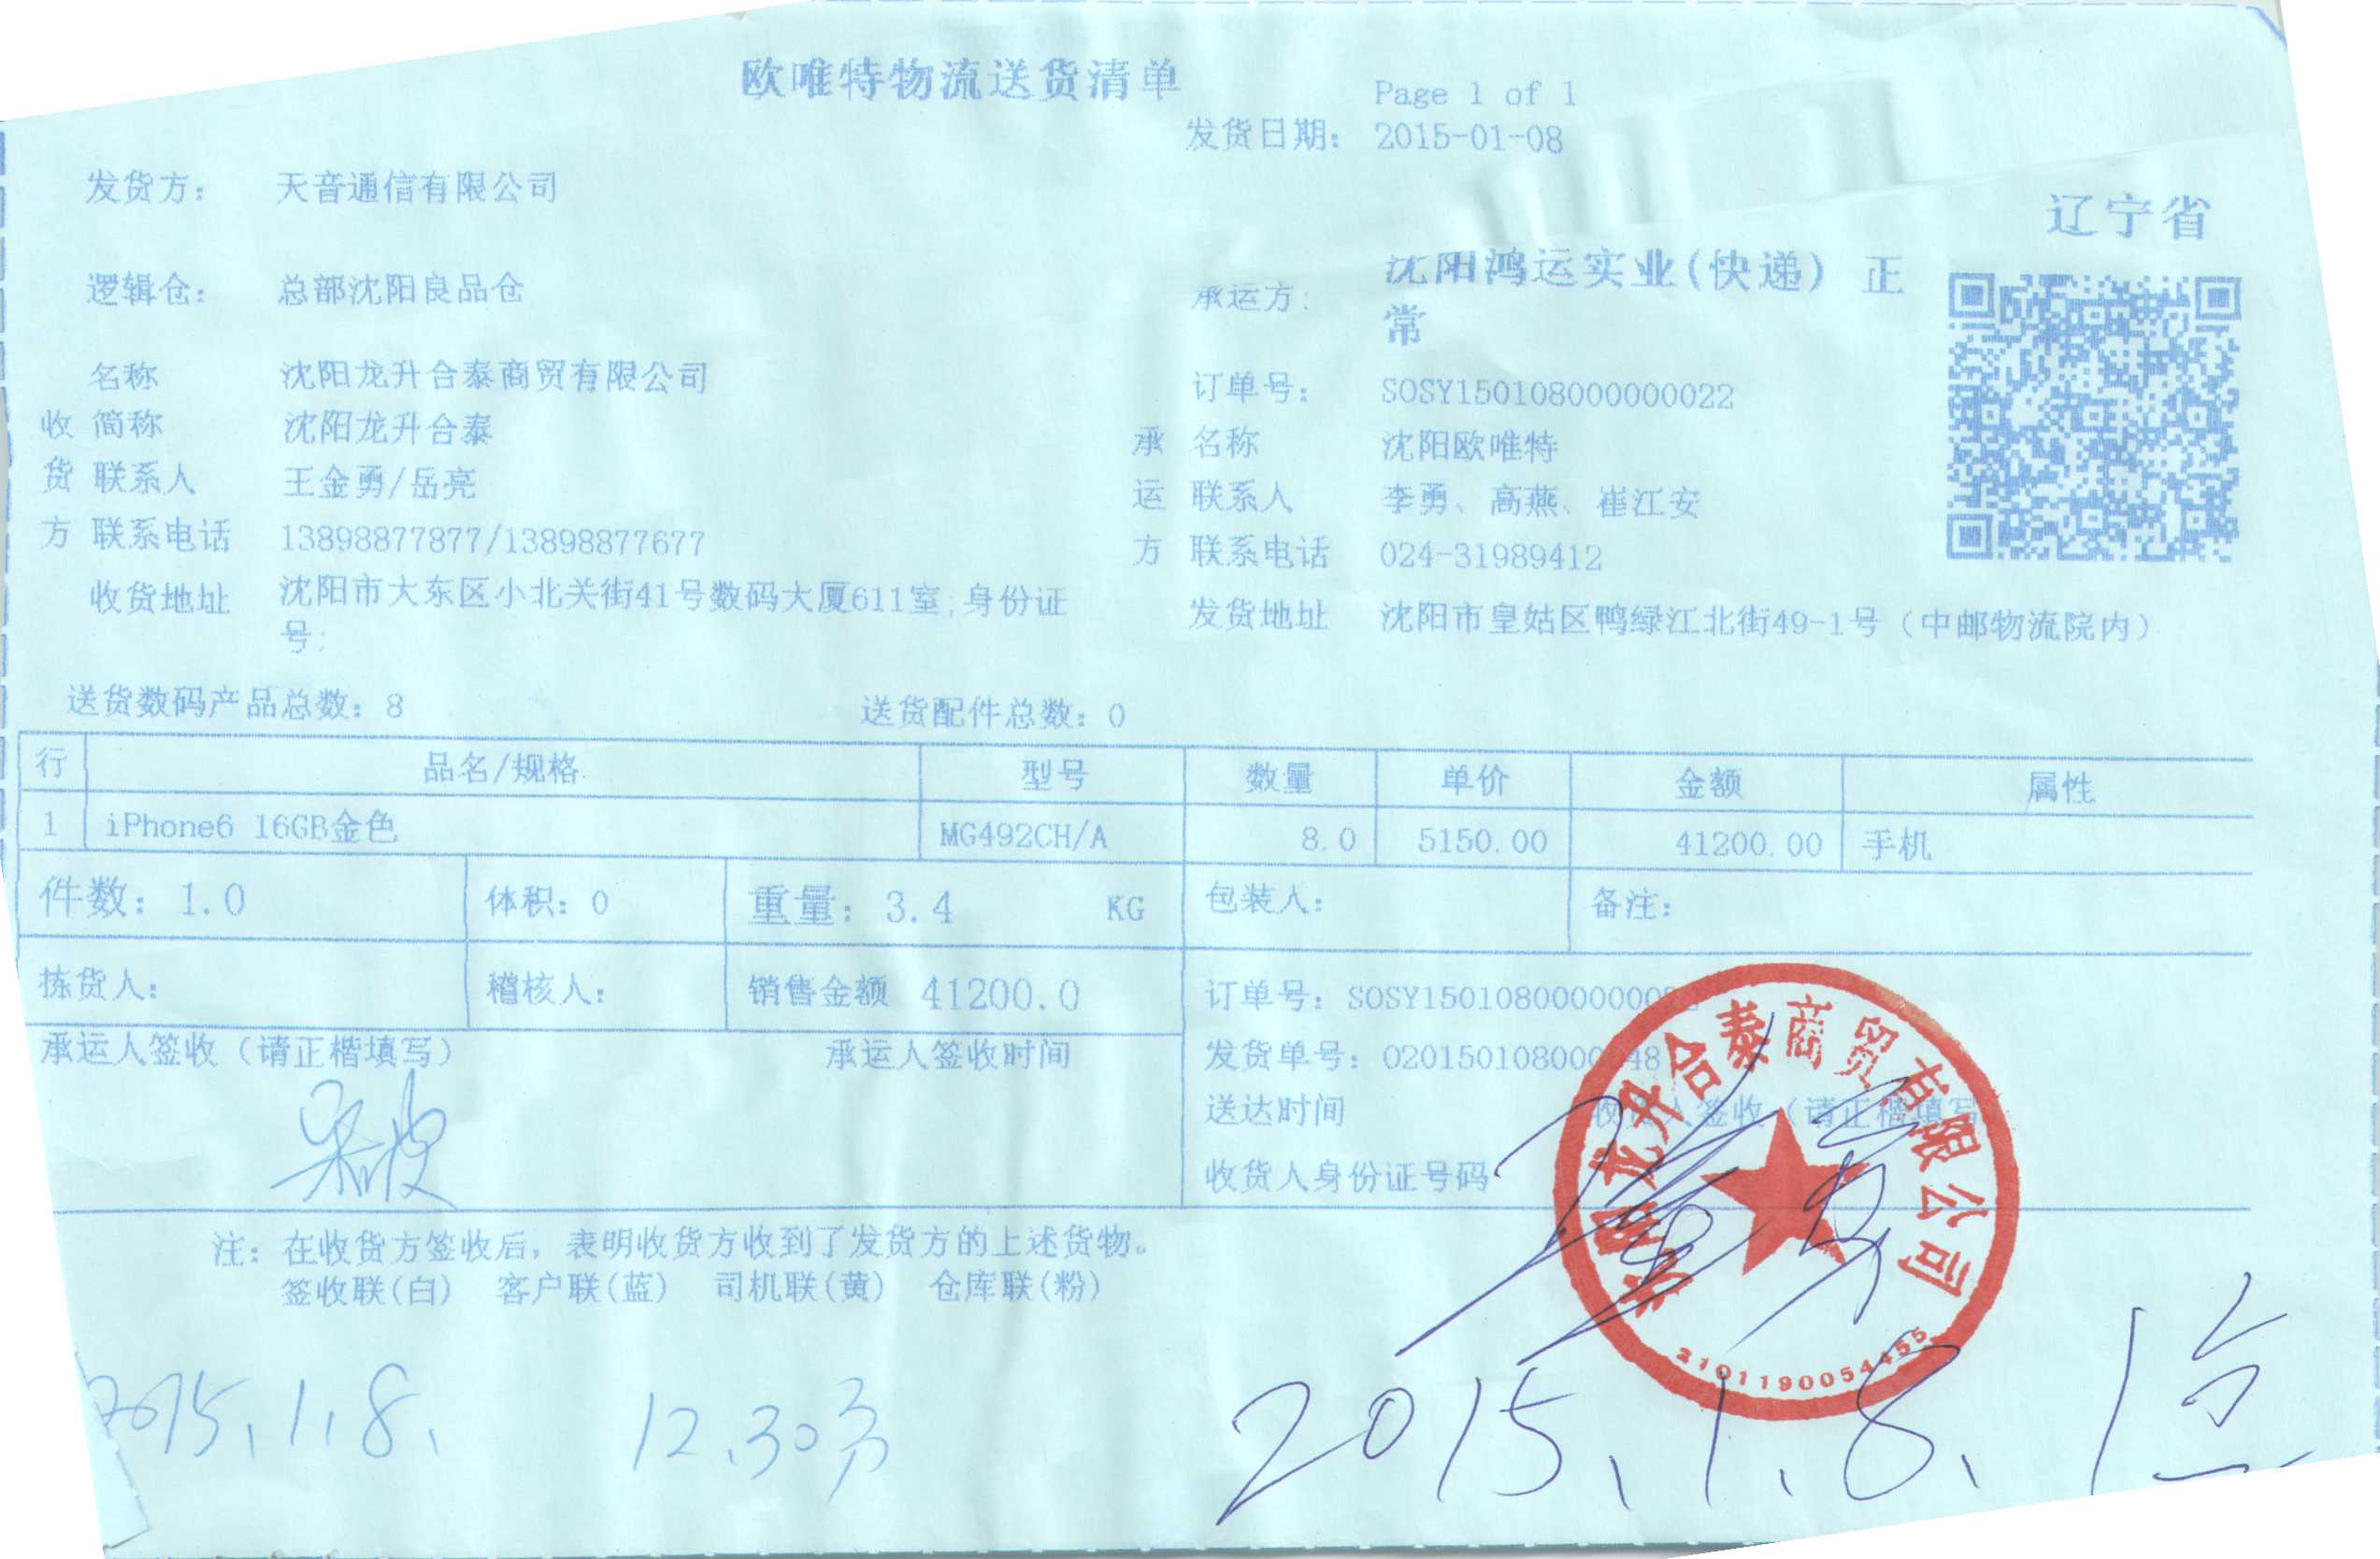 欧唯特物流送货清单
Page 1 of 1
发货日期: 2015-01-08
发货方: 天音通信有限公司
辽宁省
逻辑仓: 总部沈阳良品仓
承运方: 沈阳鸿运实业(快递) 正
常
名称 沈阳龙升合泰商贸有限公司
订单号: SOSY150108000000022
收 简称 沈阳龙升合泰
承 名称 沈阳欧唯特
货 联系人 王金勇/岳亮
运 联系人 李勇、高燕、崔江安
方 联系电话 13898877877/13898877677
方 联系电话 024-31989412
收货地址 沈阳市大东区小北关街41号数码大厦611室;身份证
号;
发货地址 沈阳市皇姑区鸭绿江北街49-1号（中邮物流院内）
送货数码产品总数: 8 送货配件总数: 0
行 品名/规格 型号 数量 单价 金额 属性
1 iPhone6 16GB金色 MG492CH/A 8.0 5150.00 41200.00 手机
件数: 1.0 体积: 0 重量: 3.4 KG 包装人: 备注:
拣货人: 稽核人: 销售金额 41200.0
订单号: SOSY1501080000000
承运人签收（请正楷填写） 承运人签收时间
发货单号: 020150108000 48
送达时间 收货人签收（请正楷填写
收货人身份证号码
龙升合泰商贸有限公司
注: 在收货方签收后, 表明收货方收到了发货方的上述货物。
签收联(白) 客户联(蓝) 司机联(黄) 仓库联(粉)
2015.1.8. 12.30分
2015.1.8. 1点